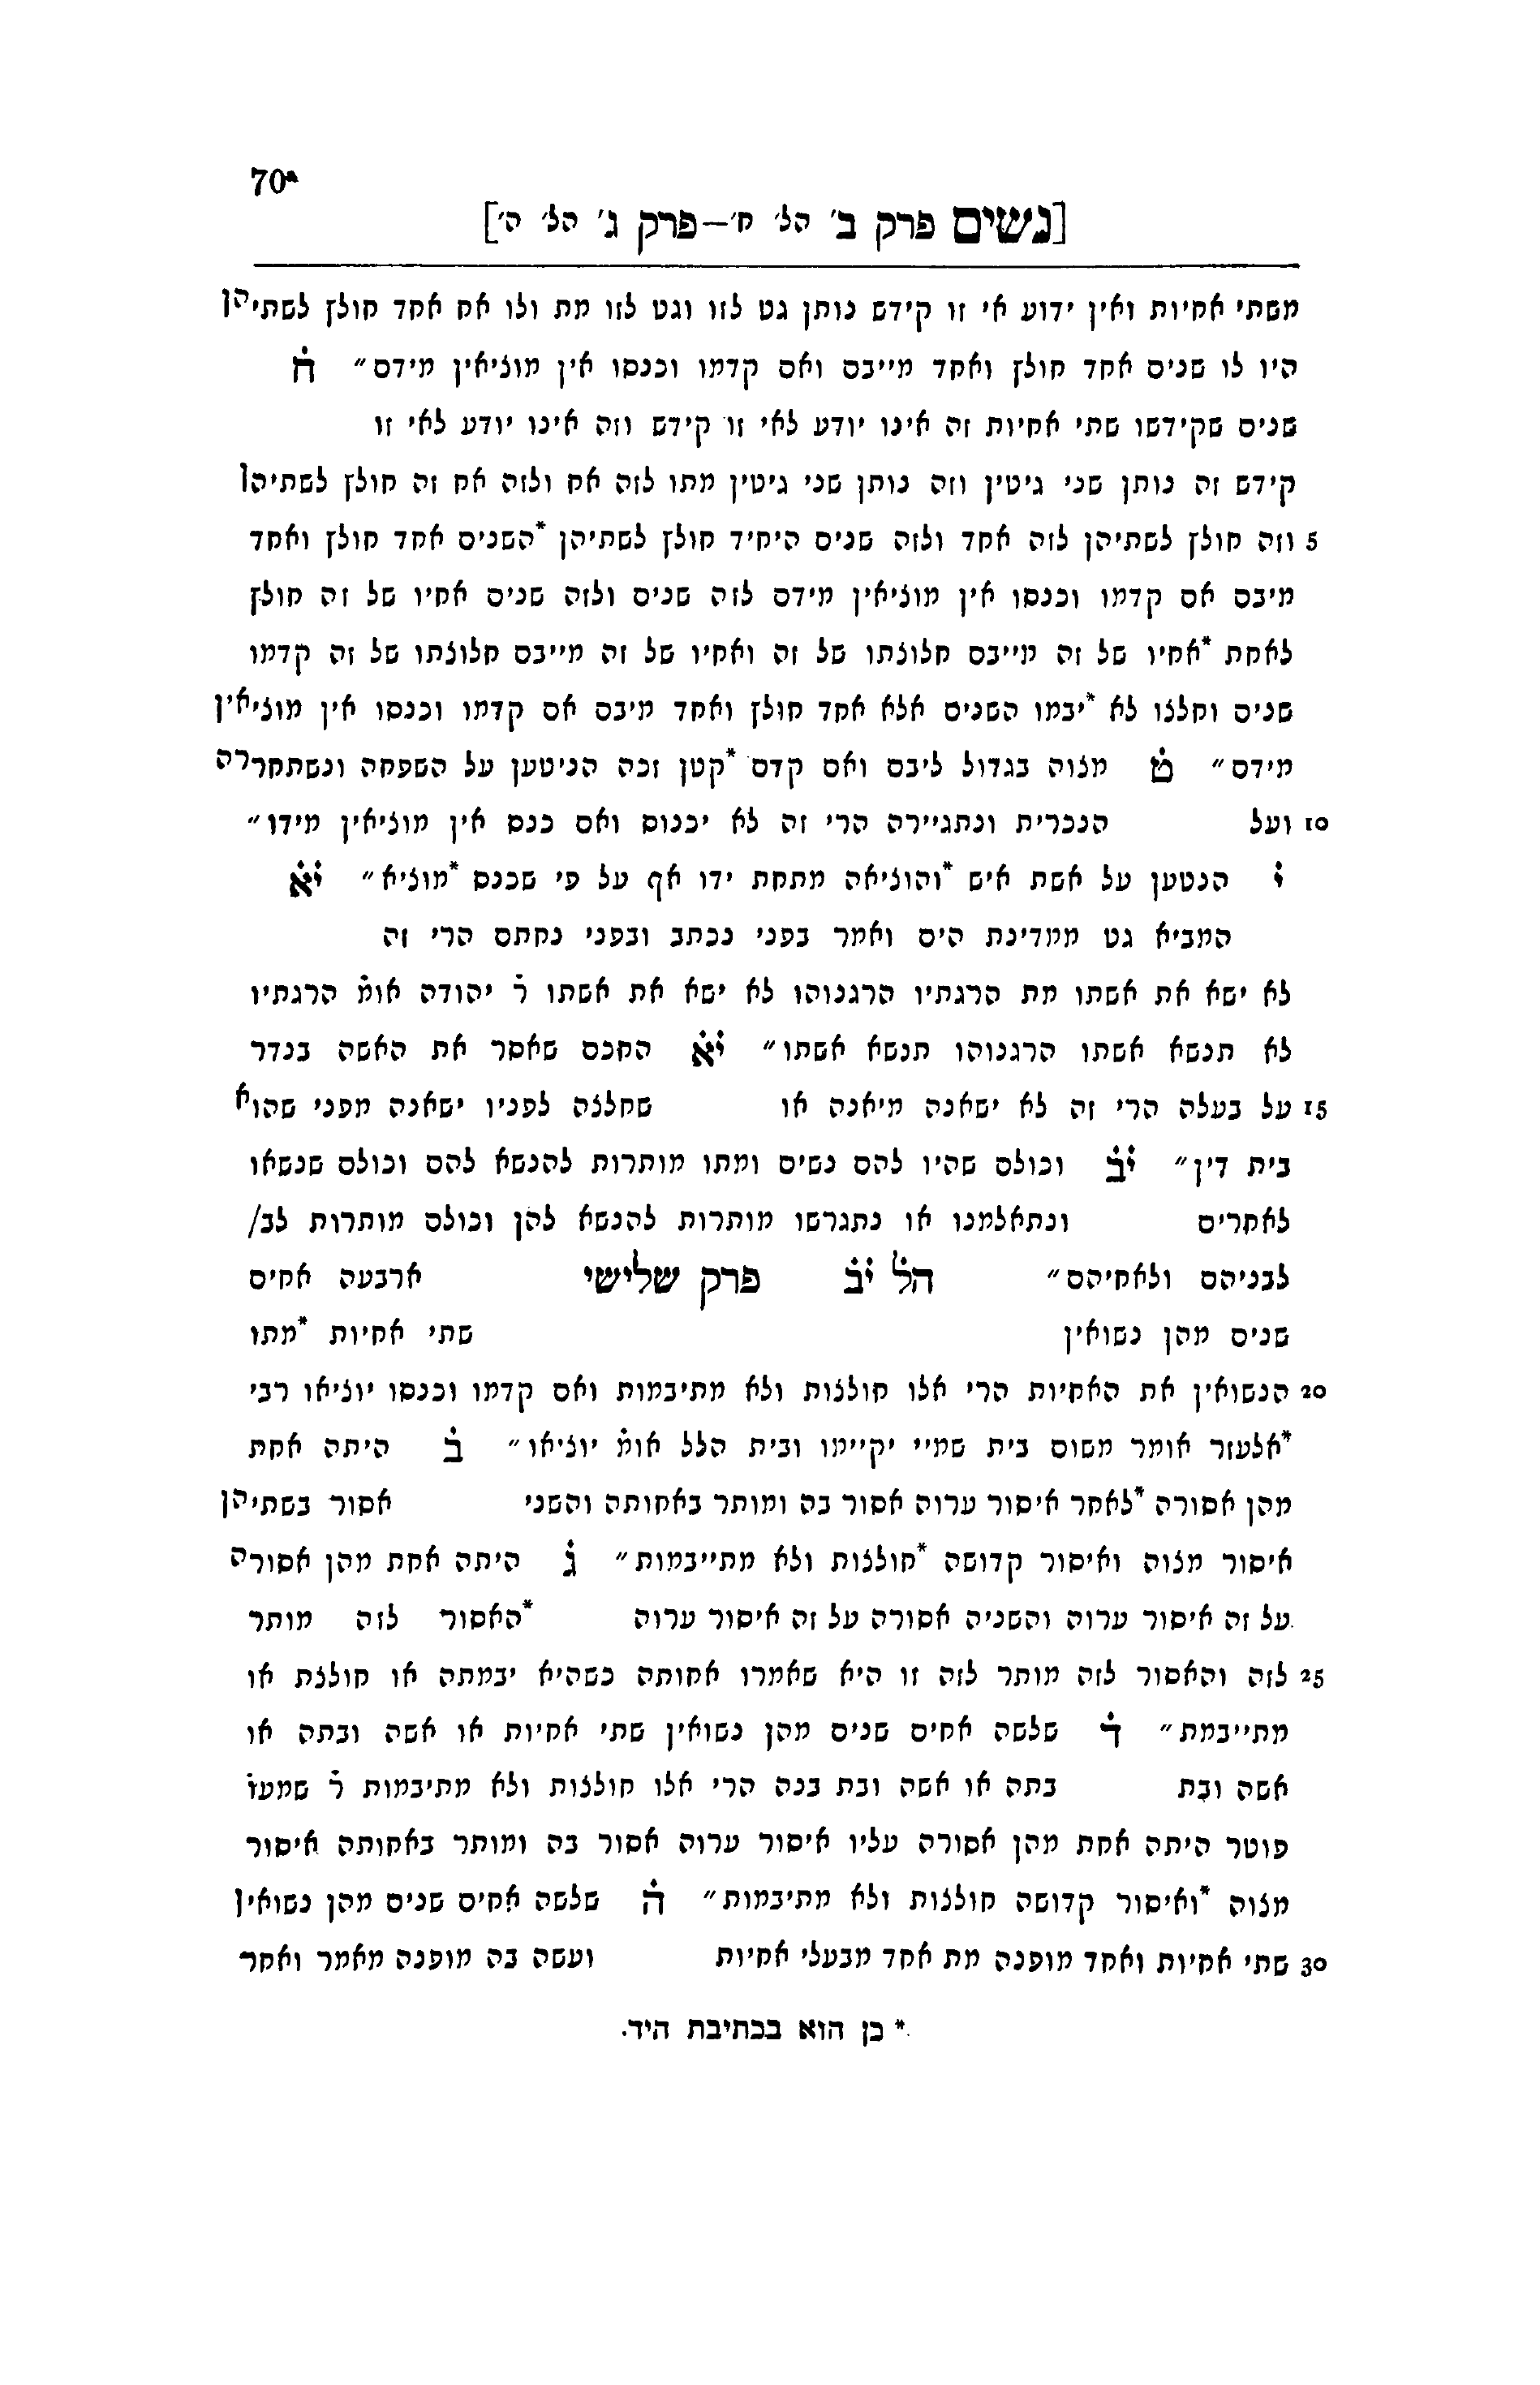 70a
[נשים פרק ב׳ הל׳ ח׳—פרק ג׳ הל׳ ה׳]
משתי אחיות ואין ידוע אי זו קידש נותן גט לזו וגט לזו מת ולו אח אחד חולץ לשתיהן
היו לו שנים אחד חולץ ואחד מייבם ואם קדמו וכנסו אין מוציאין מידם״ ח̇
שנים שקידשו שתי אחיות זה אינו יודע לאי זו קידש וזה אינו יודע לאי זו
קידש זה נותן שני גיטין וזה נותן שני גיטין מתו לזה אח ולזה אח זה חולץ לשתיהן
5 וזה חולץ לשתיהן לזה אחד ולזה שנים היחיד חולץ לשתיהן *השנים אחד חולץ ואחד
מיבם אם קדמו וכנסו אין מוציאין מידם לזה שנים ולזה שנים אחיו של זה חולץ
לאחת *אחיו של זה מייבם חלוצתו של זה ואחיו של זה מייבם חלוצתו של זה קדמו
שנים וחלצו לא *יבמו השנים אלא אחד חולץ ואחד מיבם אם קדמו וכנסו אין מוציאין
מידם״ ט̇ מצוה בגדול ליבם ואם קדם *קטן זכה הניטען על השפחה ונשתחררה
10 ועל הנכרית ונתגיירה הרי זה לא יכנוס ואם כנס אין מוציאין מידו״
י̇ הנטען על אשת איש *והוציאה מתחת ידו אף על פי שכנס *מוציא״ י̇א̇
המביא גט ממדינת הים ואמר בפני נכתב ובפני נחתם הרי זה
לא ישא את אשתו מת הרגתיו הרגנוהו לא ישא את אשתו ר̇ יהודה אומ̇ הרגתיו
לא תנשא אשתו הרגנוהו תנשא אשתו״ י̇א̇ החכם שאסר את האשה בנדר
15 על בעלה הרי זה לא ישאנה מיאנה או שחלצה לפניו ישאנה מפני שהוא
בית דין״ י̇ב̇ וכולם שהיו להם נשים ומתו מותרות להנשא להם וכולם שנשאו
לאחרים ונתאלמנו או נתגרשו מותרות להנשא להן וכולם מותרות לב/
לבניהם ולאחיהם״ הל̇ י̇ב̇ פרק שלישי ארבעה אחים
שנים מהן נשואין שתי אחיות *מתו
20 הנשואין את האחיות הרי אלו חולצות ולא מתיבמות ואם קדמו וכנסו יוציאו רבי
*אלעזר אומר משום בית שמיי יקיימו ובית הלל אומ̇ יוציאו״ ב̇ היתה אחת
מהן אסורה *לאחר איסור ערוה אסור בה ומותר באחותה והשני אסור בשתיהן
איסור מצוה ואיסור קדושה *חולצות ולא מתייבמות״ ג̇ היתה אחת מהן אסורה
על זה איסור ערוה והשניה אסורה על זה איסור ערוה *האסור לזה מותר
25 לזה והאסור לזה מותר לזה זו היא שאמרו אחותה כשהיא יבמתה או חולצת או
מתייבמת״ ד̇ שלשה אחים שנים מהן נשואין שתי אחיות או אשה ובתה או
אשה ובת בתה או אשה ובת בנה הרי אלו חולצות ולא מתיבמות ר̇ שמעו̇
פוטר היתה אחת מהן אסורה עליו איסור ערוה אסור בה ומותר באחותה איסור
מצוה *ואיסור קדושה חולצות ולא מתיבמות״ ה̇ שלשה אחים שנים מהן נשואין
30 שתי אחיות ואחד מופנה מת אחד מבעלי אחיות ועשה בה מופנה מאמר ואחר
* כן הוא בכתיבת היד.